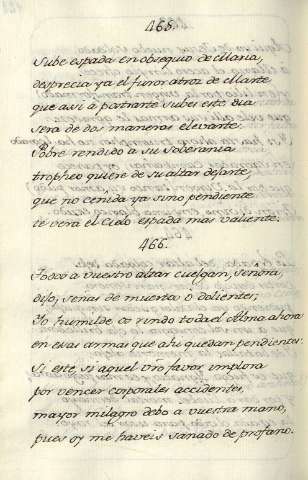 465.
Sube espada en obsequio de Maria,
desprecia ya el furor atroz de Marte
que assi a postrarte subes este dia
sera de dos maneras elevarte.
Pobre rendido a su soberania
tropheo quiere de su altar dejarte,
que no ceñida ya sino pendiente
te verà el Cielo espada mas valiente.
466.
Todos a vuestro altar cuelgan, señora,
dijo, señas de muertos o dolientes,
Yo humilde os rindo toda el Alma ahora
en esas armas que ahi quedan pendientes.
Si este, si aquel vro favor implora
por vencer corporales accidentes,
mayor milagro debo a vuestra mano,
pues oy me haveis sanado de profano.